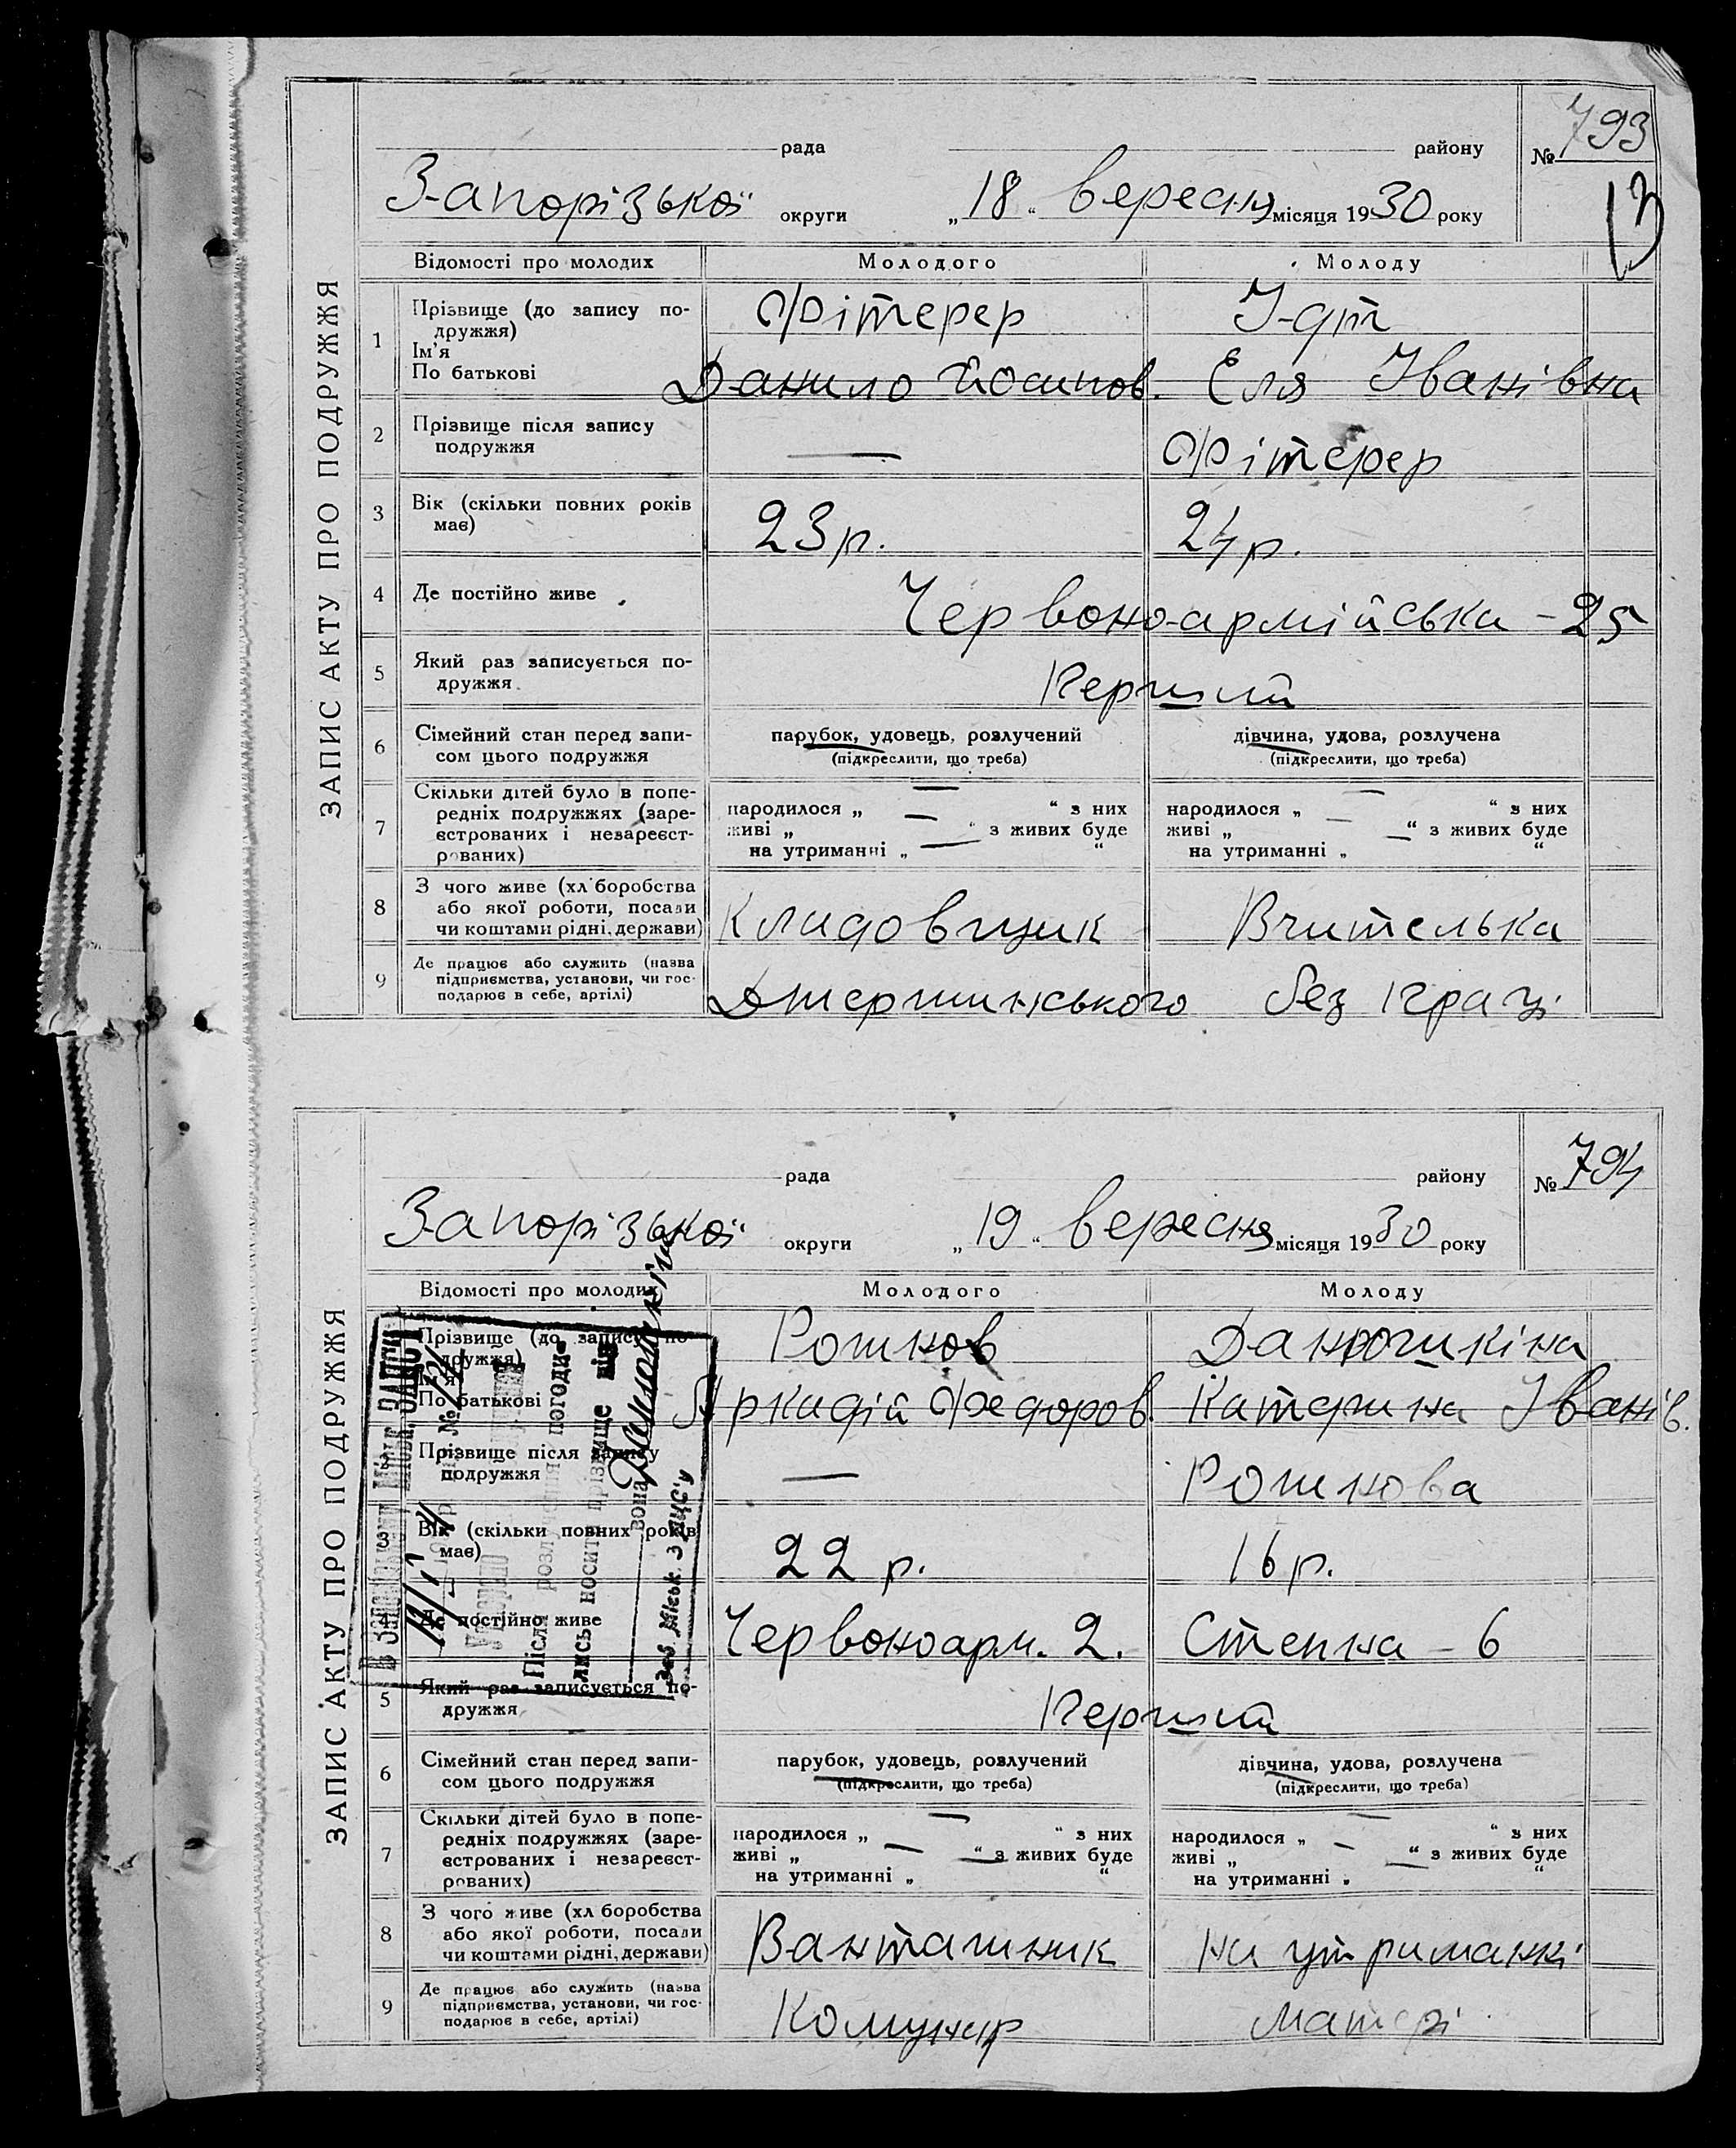 ЗАПИС АКТУ ПРО ПОДРУЖЖЯ
рада району № 793
13
Запорізької округи „18“ вересня місяця 1930 року
Відомості про молодих Молодого Молоду
1 Прізвище (до запису по-
дружжя)
Ім'я
По батькові
Фітерер
Данило Йосипов.
Еля Іванівна
2 Прізвище після запису
подружжя
— Фітерер
3 Вік (скільки повних років
має)
23 р. 24 р.
4 Де постійно живе Червоно-армійська - 25
5 Який раз записується по-
дружжя
Перший
6 Сімейний стан перед запи-
сом цього подружжя
парубок, удовець, розлучений
(підкреслити, що треба)
дівчина, удова, розлучена
(підкреслити, що треба)
7 Скільки дітей було в попе-
редніх подружжях (заре-
єстрованих і незареєст-
рованих)
народилося „ — “ з них
живі „ — “ з живих буде
на утриманні „ — “
народилося „ — “ з них
живі „ — “ з живих буде
на утриманні „ — “
8 З чого живе (хліборобства
або якої роботи, посади
чи коштами рідні, держави)
Кладовщик Вчителька
9 Де працює або служить (назва
підприємства, установи, чи гос-
подарює в себе, артілі)
Джержинського без праці
ЗАПИС АКТУ ПРО ПОДРУЖЖЯ
рада району № 794
Запорізької округи „19“ вересня місяця 1930 року
Відомості про молодих Молодого Молоду
Прізвище (до запису по-
дружжя)
Ім'я
По батькові
Рожков
Аркадій Федоров.
Данюшкіна
Катерина Іванів.
Прізвище після запису
подружжя
— Рожкова
3 Вік (скільки повних років
має)
22 р. 16 р.
4 Де постійно живе Червоноарм. 2. Степна - 6
5 Який раз записується по-
дружжя
Перший
6 Сімейний стан перед запи-
сом цього подружжя
парубок, удовець, розлучений
(підкреслити, що треба)
дівчина, удова, розлучена
(підкреслити, що треба)
7 Скільки дітей було в попе-
редніх подружжях (заре-
єстрованих і незареєст-
рованих)
народилося „ — “ з них
живі „ — “ з живих буде
на утриманні „ “
народилося „ — “ з них
живі „ — “ з живих буде
на утриманні „ “
8 З чого живе (хліборобства
або якої роботи, посади
чи коштами рідні, держави)
Вантажник на утриманні
9 Де працює або служить (назва
підприємства, установи, чи гос-
подарює в себе, артілі)
Комунар матері
Після погоди-
лись носити прізвище він
вона
Зав. Міськ. ЗАГС'у